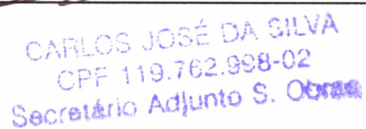 CARLOS JOSÉ DA SILVA
CPF 119.762.998-02
Secretário Adjunto S. Obras